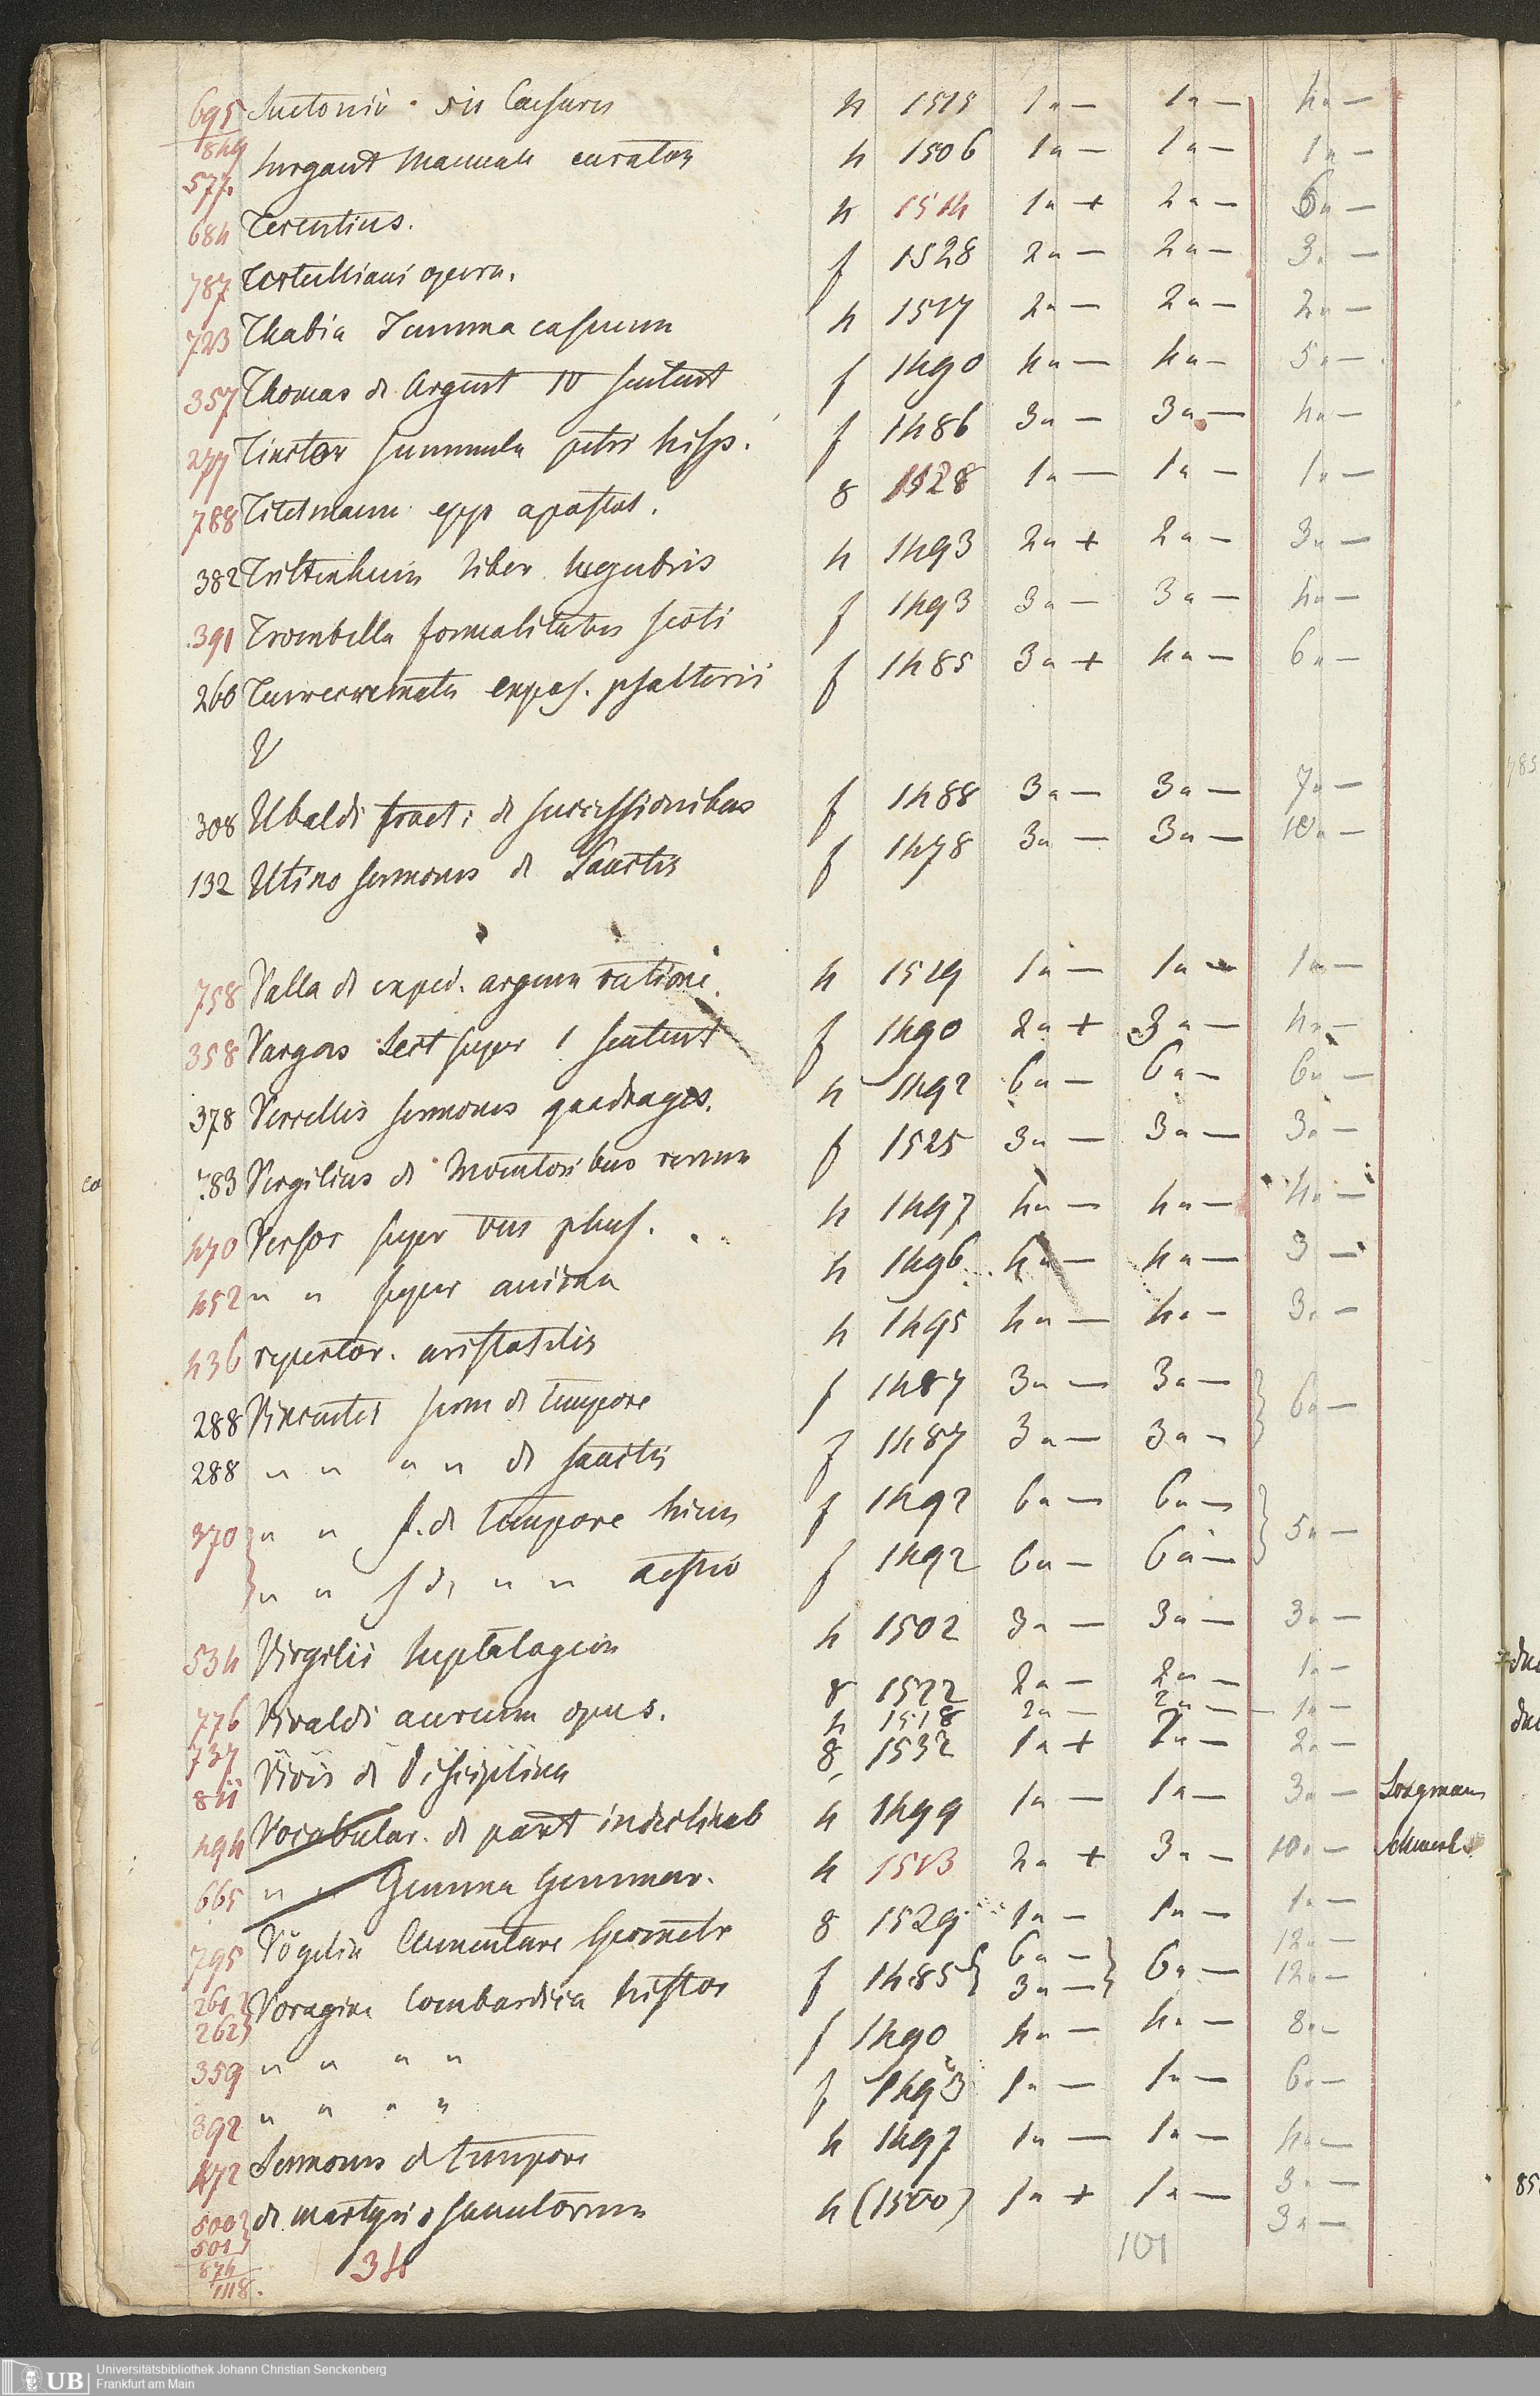 695 Suetonii XII Caesares 4 1515 1 „ — 1 „ — 4 „ —
844
577. Surgant Manuale curator 4 1506 1 „ — 1 „ — 1 „ —
684 Terentius. 4 1514 1 „ + 2 „ — 6 „ —
787 Tertulliani opera. f 1528 2 „ — 2 „ — 3 „ —
723 Thabia Summa casuum 4 1517 2 „ — 2 „ — 2 „ —
357 Thomas de Argent IV sentent f 1490 4 „ — 4 „ — 5 „ —
277 Tinctor summula petri hisp. f 1486 3 „ — 3 „ — 4 „ —
788 Titelmann epp apostol. 8 1528 1 „ — 1 „ — 1 „ —
382 Trittenheim liber lugubris 4 1493 2 „ + 2 „ — 3 „ —
391 Trombella formalitates scoti f 1493 3 „ — 3 „ — 4 „ —
260 Turrecremata expos. psalterii f 1485 3 „ + 4 „ — 6 „ —
V
308 Ubaldi tract: de successionibus f 1488 3 „ — 3 „ — 7 „ —
132 Utino sermones de Sanctis f 1478 3 „ — 3 „ — 10 „ —
758 Valla de exped. argum ratione. 4 1519 1 „ — 1 „ — 1 „ —
358 Vargas Lect super 1 sentent f 1490 2 „ + 3 „ — 4 „ —
378 Vercellis sermones quadrages. 4 1492 6 „ — 6 „ — 6 „ —
783 Virgilius de Inventoribus rerum f 1525 3 „ — 3 „ — 3 „ —
470 Versor super phys. 4 1497 4 „ — 4 „ — 4 „ —
452 „ „ super anima 4 1496 4 „ — 4 „ — 3 —
436 repertor. aristotelis 4 1495 4 „ — 4 „ — 3 „ —
288 Vincentii serm de tempore f 1487 3 „ — 3 „ — 6 „ —
288 „ „ „ „ de sanctis f 1487 3 „ — 3 „ —
370 „ „ s. de tempore hiem f 1492 6 „ — 6 „ — 5 „ —
„ „ s de „ „ aestiv f 1492 6 „ — 6 „ —
534 Virgilii heptalogium 4 1502 3 „ — 3 „ — 3 „ —
776 Vivaldi aureum opus. 8 1522 2 „ — 2 „ — 1 „ —
737 4 1518 2 „ — 2 „ — 1 „ —
811 Vivis de Disciplina 8 1532 1 „ + 1 „ — 2 „ —
494 Vocabular. de part indeclinab 4 1499 1 „ — 1 „ — 3 „ —
665 „ „ Gemma Gemmar. 4 1513 2 „ + 3 „ — 10 „ —
795 Vögelin Elementare Geometr 8 1529 1 „ — 1 „ — 1 „ —
261 Voragine Lombardica histor f 1485 6 „ — 6 „ — 12 „ —
262 3 „ — 12 „ —
359 „ „ „ „ f 1490 4 „ — 4 „ — 8 „ —
392 „ „ „ „ f 1493 1 „ — 1 „ — 6 „ —
472 Sermones de tempore 4 1497 1 „ — 1 „ — 4 „ —
500 de martyrio sanctorum 4 (1500) 1 „ + 1 „ — 3 „ —
501 3 „ —
874
1118.
34
101
UB Universitätsbibliothek Johann Christian Senckenberg
Frankfurt am Main